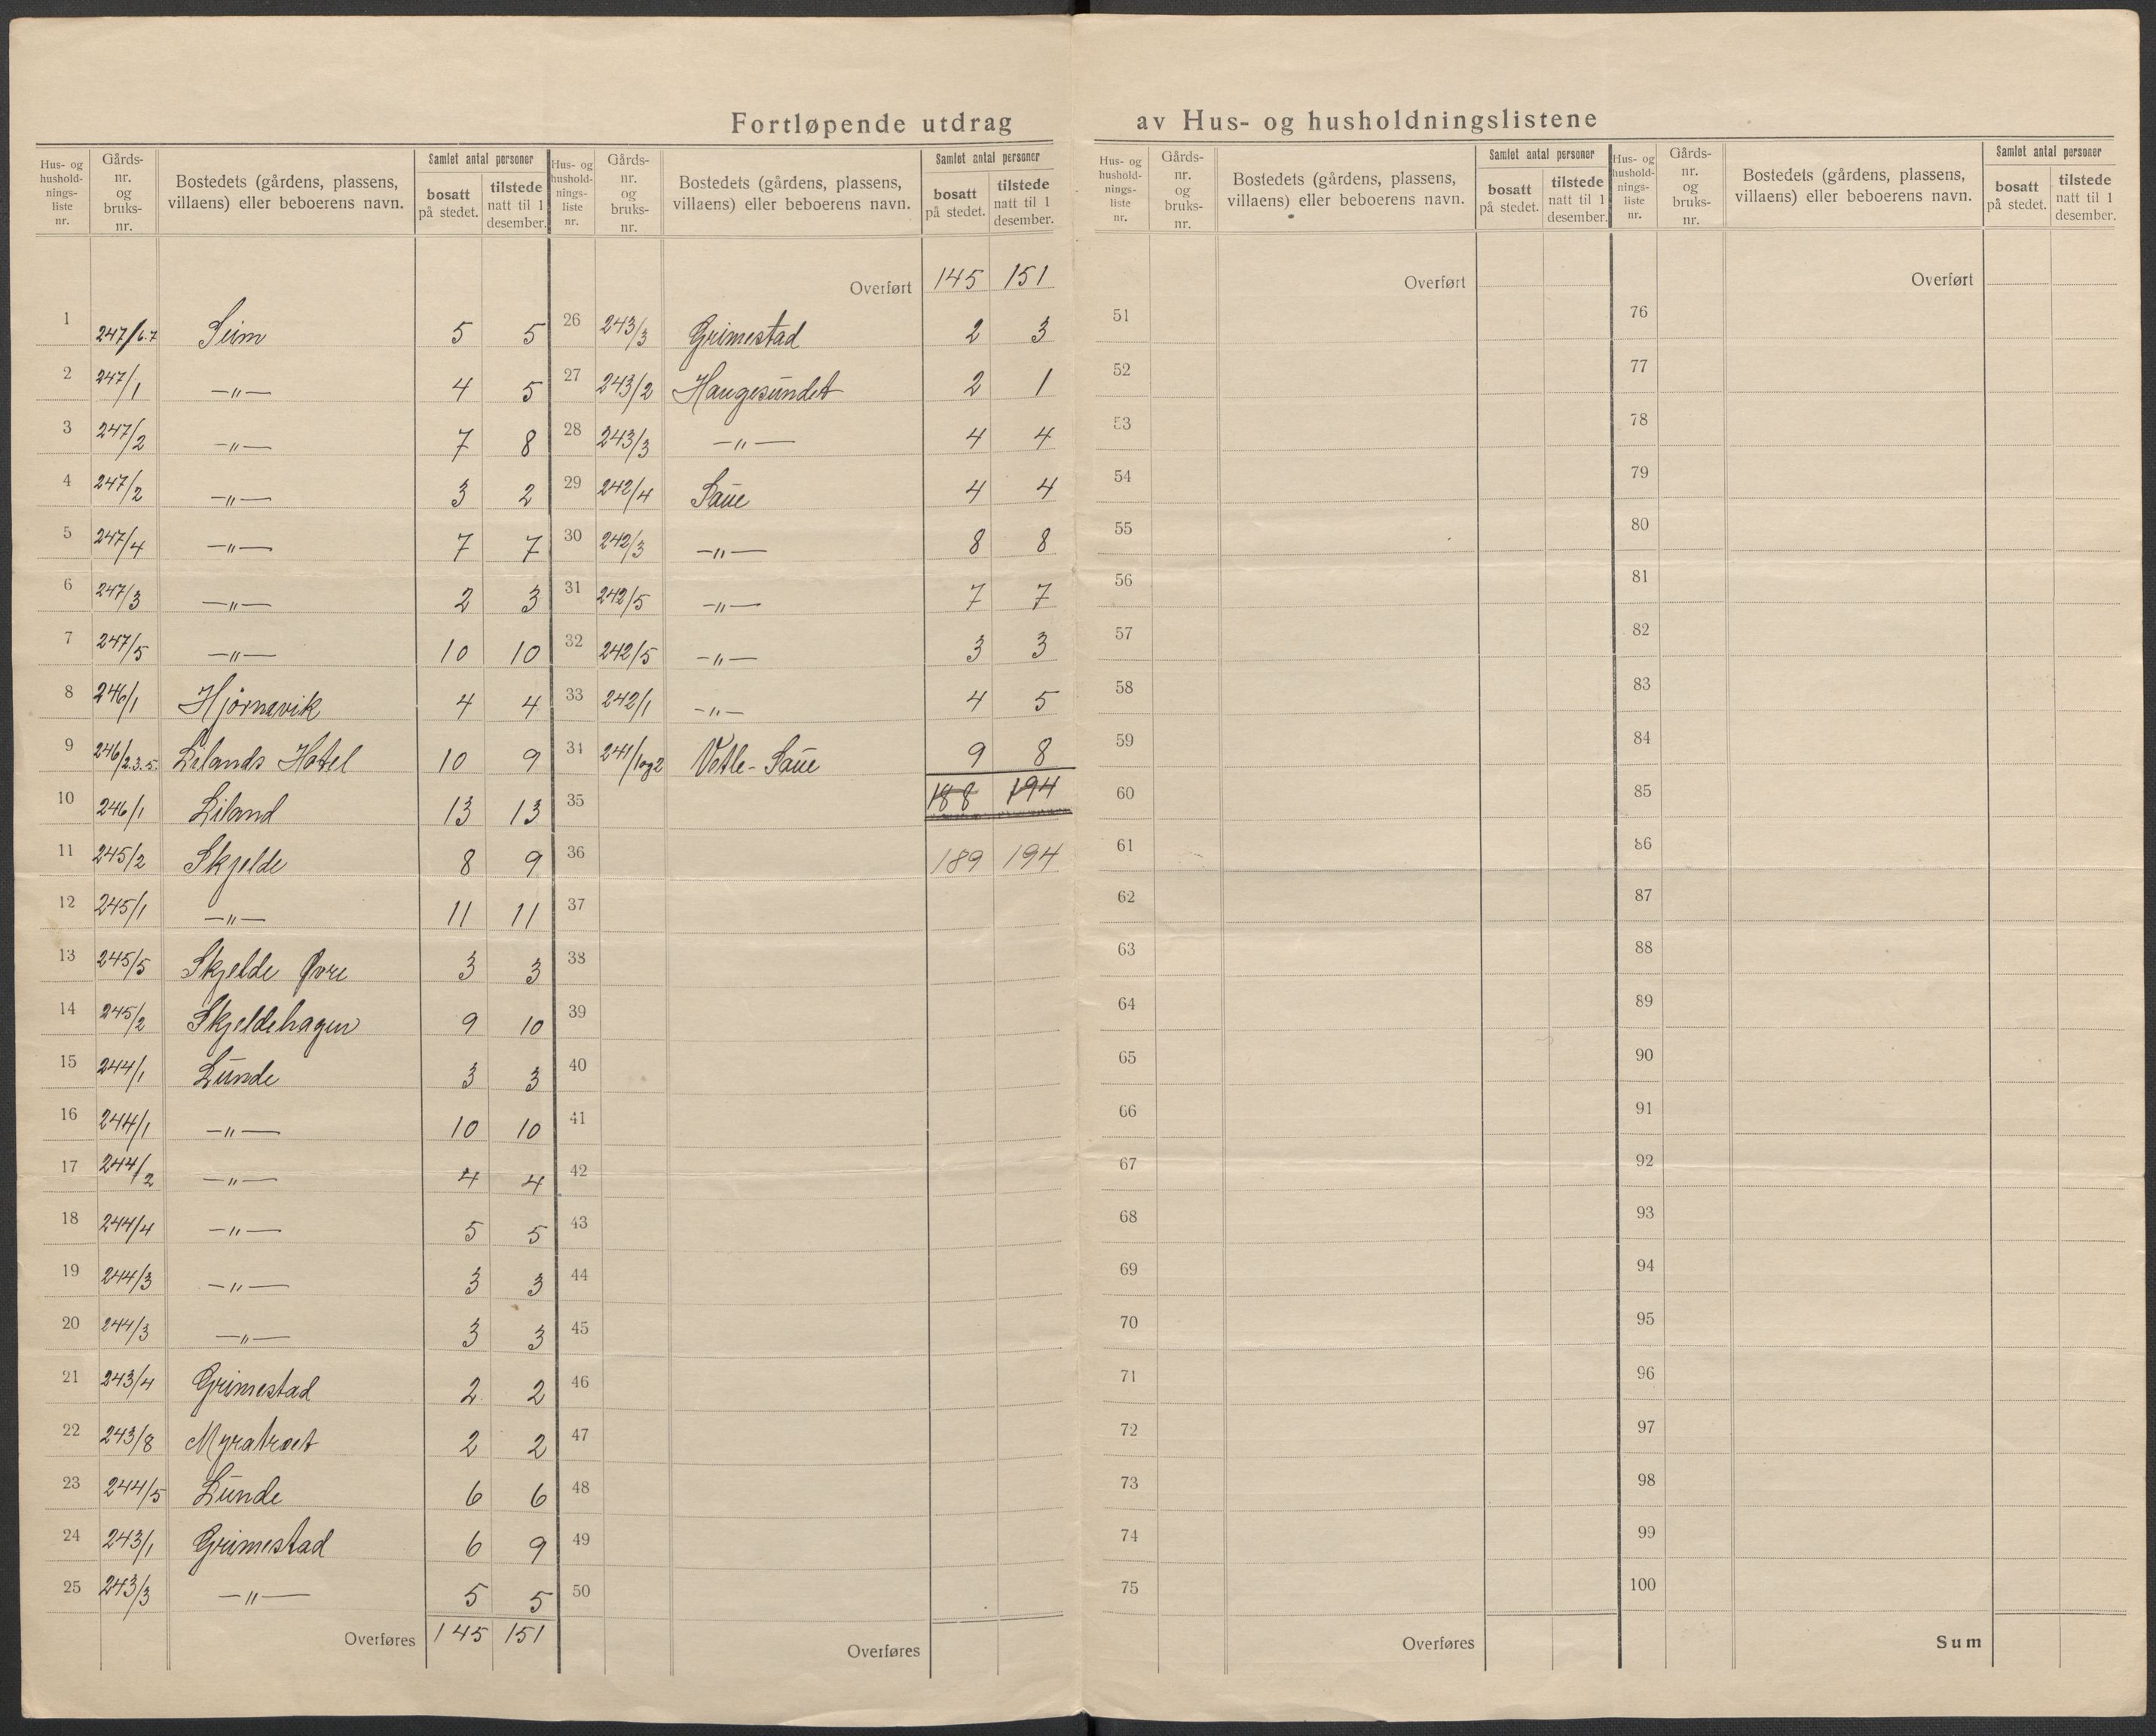 Fortløpende utdrag av Hus- og husholdningslistene
Hus- og hushold-nings-liste nr. | Gårds-nr. og bruks-nr. | Bostedets (gårdens, plassens, villaens) eller beboerens navn. | Samlet antal personer | bosatt på stedet. | tilstede natt til 1 desember.
1 247/6.7 Seim 5 5
2 247/1 —"— 4 5
3 247/2 —"— 7 8
4 247/2 —"— 3 2
5 247/4 —"— 7 7
6 247/3 —"— 2 3
7 247/5 —"— 10 10
8 246/1 Hjørnevik 4 4
9 246/2.3.5. Lilands Hotel 10 9
10 246/1 Liland 13 13
11 245/2 Skjelde 8 9
12 245/1 —"— 11 11
13 245/5 Skjelde Øvre 3 3
14 245/2 Skjeldehagen 9 10
15 244/1 Lunde 3 3
16 244/1 —"— 10 10
17 244/2 —"— 4 4
18 244/4 —"— 5 5
19 244/3 —"— 3 3
20 244/3 —"— 3 3
21 243/4 Grimestad 2 2
22 243/8 2 2
23 244/5 Lunde 6 6
24 243/1 Grimestad 6 9
25 243/3 —"— 5 5
Overføres 145 151
Hus- og hushold-nings-liste nr. | Gårds-nr. og bruks-nr. | Bostedets (gårdens, plassens, villaens) eller beboerens navn. | Samlet antal personer | bosatt på stedet. | tilstede natt til 1 desember.
Overført 145 151
26 243/3 Grimestad 2 3
27 243/2 Haugesundet 2 1
28 243/3 —"— 4 4
29 242/4 Saue 4 4
30 242/3 —"— 8 8
31 242/5 —"— 7 7
32 242/5 —"— 3 3
33 242/1 —"— 4 5
34 241/1og2 Vetle-Saue 9 8
35 188 194
36 189 194
37
38
39
40
41
42
43
44
45
46
47
48
49
50
Overføres
Hus- og hushold-nings-liste nr. | Gårds-nr. og bruks-nr. | Bostedets (gårdens, plassens, villaens) eller beboerens navn. | Samlet antal personer | bosatt på stedet. | tilstede natt til 1 desember.
Overført
51
52
53
54
55
56
57
58
59
60
61
62
63
64
65
66
67
68
69
70
71
72
73
74
75
Overføres
Hus- og hushold-nings-liste nr. | Gårds-nr. og bruks-nr. | Bostedets (gårdens, plassens, villaens) eller beboerens navn. | Samlet antal personer | bosatt på stedet. | tilstede natt til 1 desember.
Overført
76
77
78
79
80
81
82
83
84
85
86
87
88
89
90
91
92
93
94
95
96
97
98
99
100
Sum